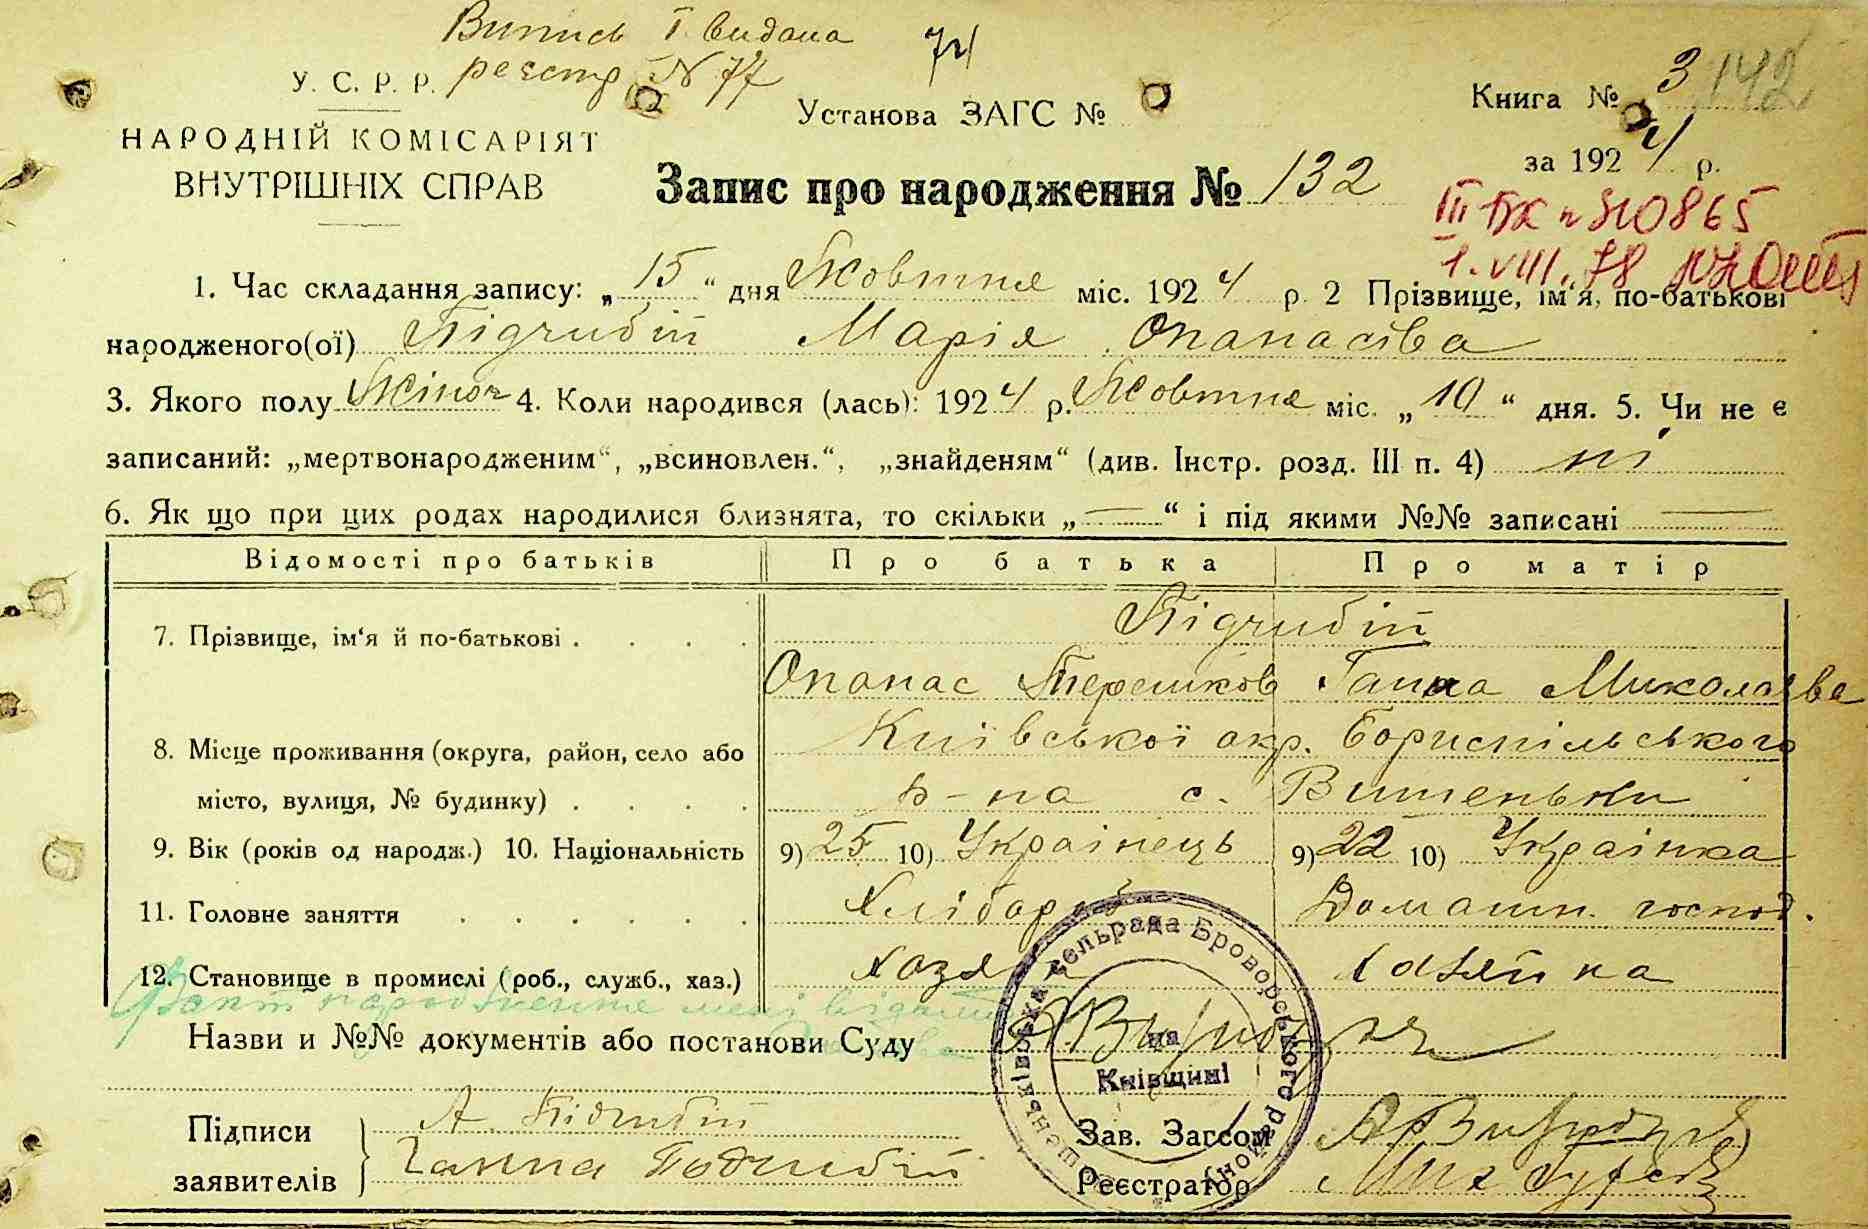 Випись І видана 74
У. С. Р. Р. реєстр N 77
Установа ЗАГС №
Книга № 3 142
НАРОДНІЙ КОМІСАРІЯТ
ВНУТРІШНІХ СПРАВ
за 1924 р.
Запис про народження № 132
ІІІ БК № 510865
1. VIII. 78
1. Час складання запису: „15“ дня Жовтня міс. 1924 р. 2 Прізвище, ім‘я, по-батькові
народженого(ої) Підгибій Марія Опанасівва
3. Якого полу Жіноч 4. Коли народився (лась): 1924 р. Жовтня міс. „10“ дня. 5. Чи не є
записаний: „мертвонародженим“, „всиновлен.“, „знайденям“ (див. Інстр. розд. III п. 4) ні
6. Як що при цих родах народилися близнята, то скільки „—“ і під якими №№ записані —
Відомості про батьків Про батька Про матір
7. Прізвище, ім‘я й по-батькові . . . . Підгибій
Опанас Терешков Ганна Миколаєва
8. Місце проживання (округа, район, село або Київської окр. Бориспільського
місто, вулиця, № будинку) . . . . р-на с. Вишеньки
9. Вік (років од народж.) 10. Національність 9) 25 10) Українець 9) 22 10) Українка
11. Головне заняття . . . . . . Хлібороб Домашн. господ.
12. Становище в промислі (роб., служб., хаз.) Хозяїн Хазяйка
Факт народження мені відомий
Назви и №№ документів або постанови Суду
сельрада Броворського району
на
Київщині
Підписи А. Підгибій Зав. Загсом
заявителів Ганна Подгибій Реєстратор